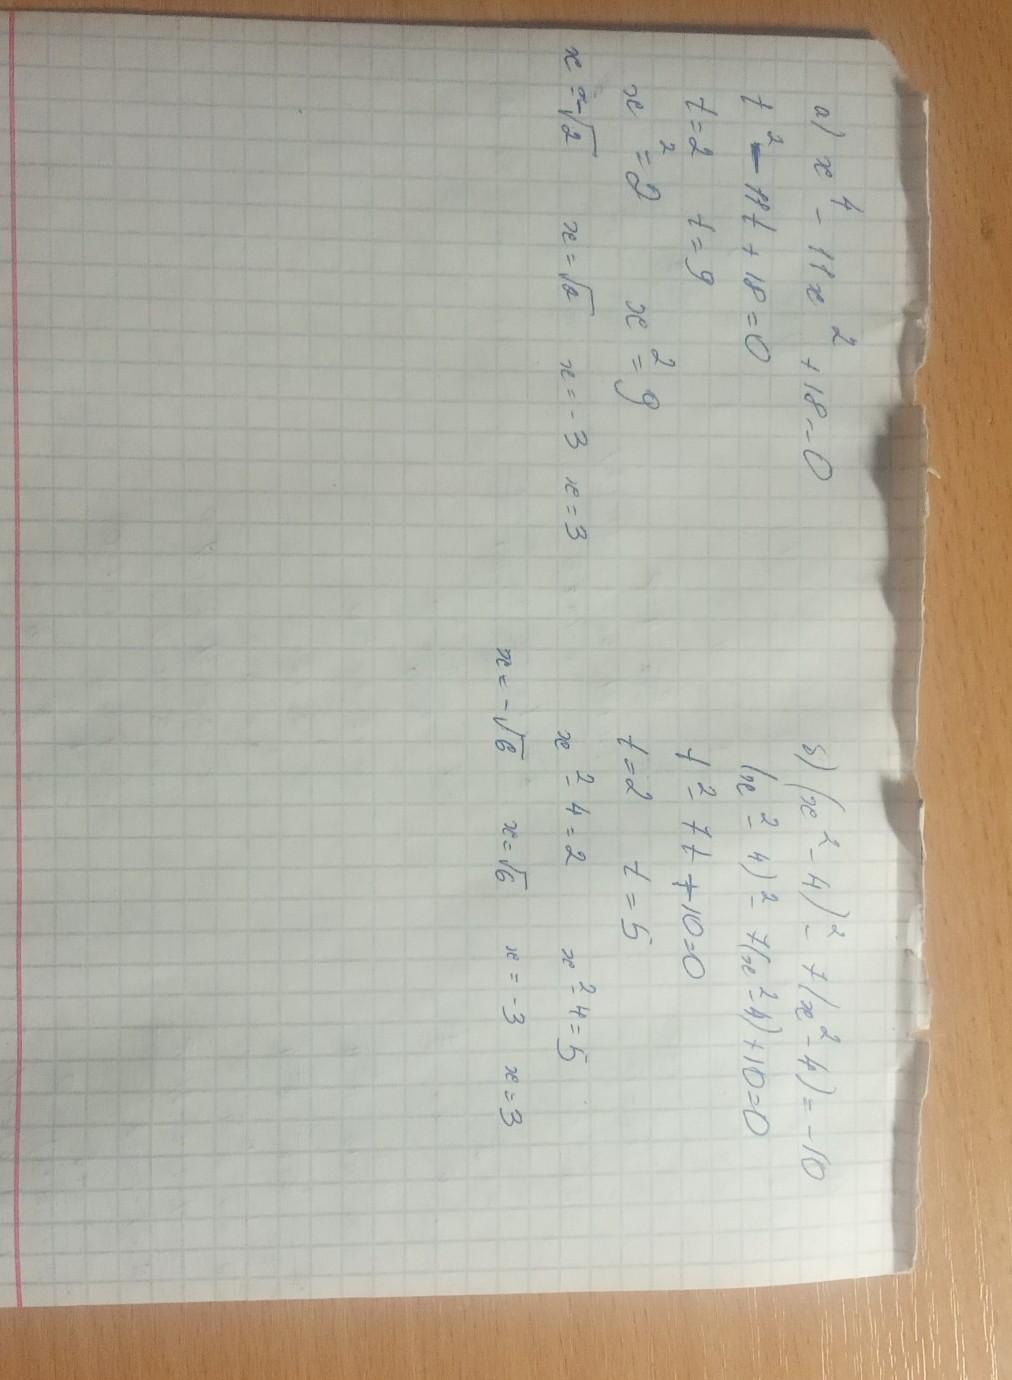 а) x⁴ - 11x² + 18 = 0
t² - 11t + 18 = 0
t = 2 t = 9
x² = 2 x² = 9
x = -√2 x = √2 x = -3 x = 3
б) (x² - 4)² - 7(x² - 4) = -10
(x² - 4)² - 7(x² - 4) + 10 = 0
t² - 7t + 10 = 0
t = 2 t = 5
x² - 4 = 2 x² - 4 = 5
x = -√6 x = √6 x = -3 x = 3